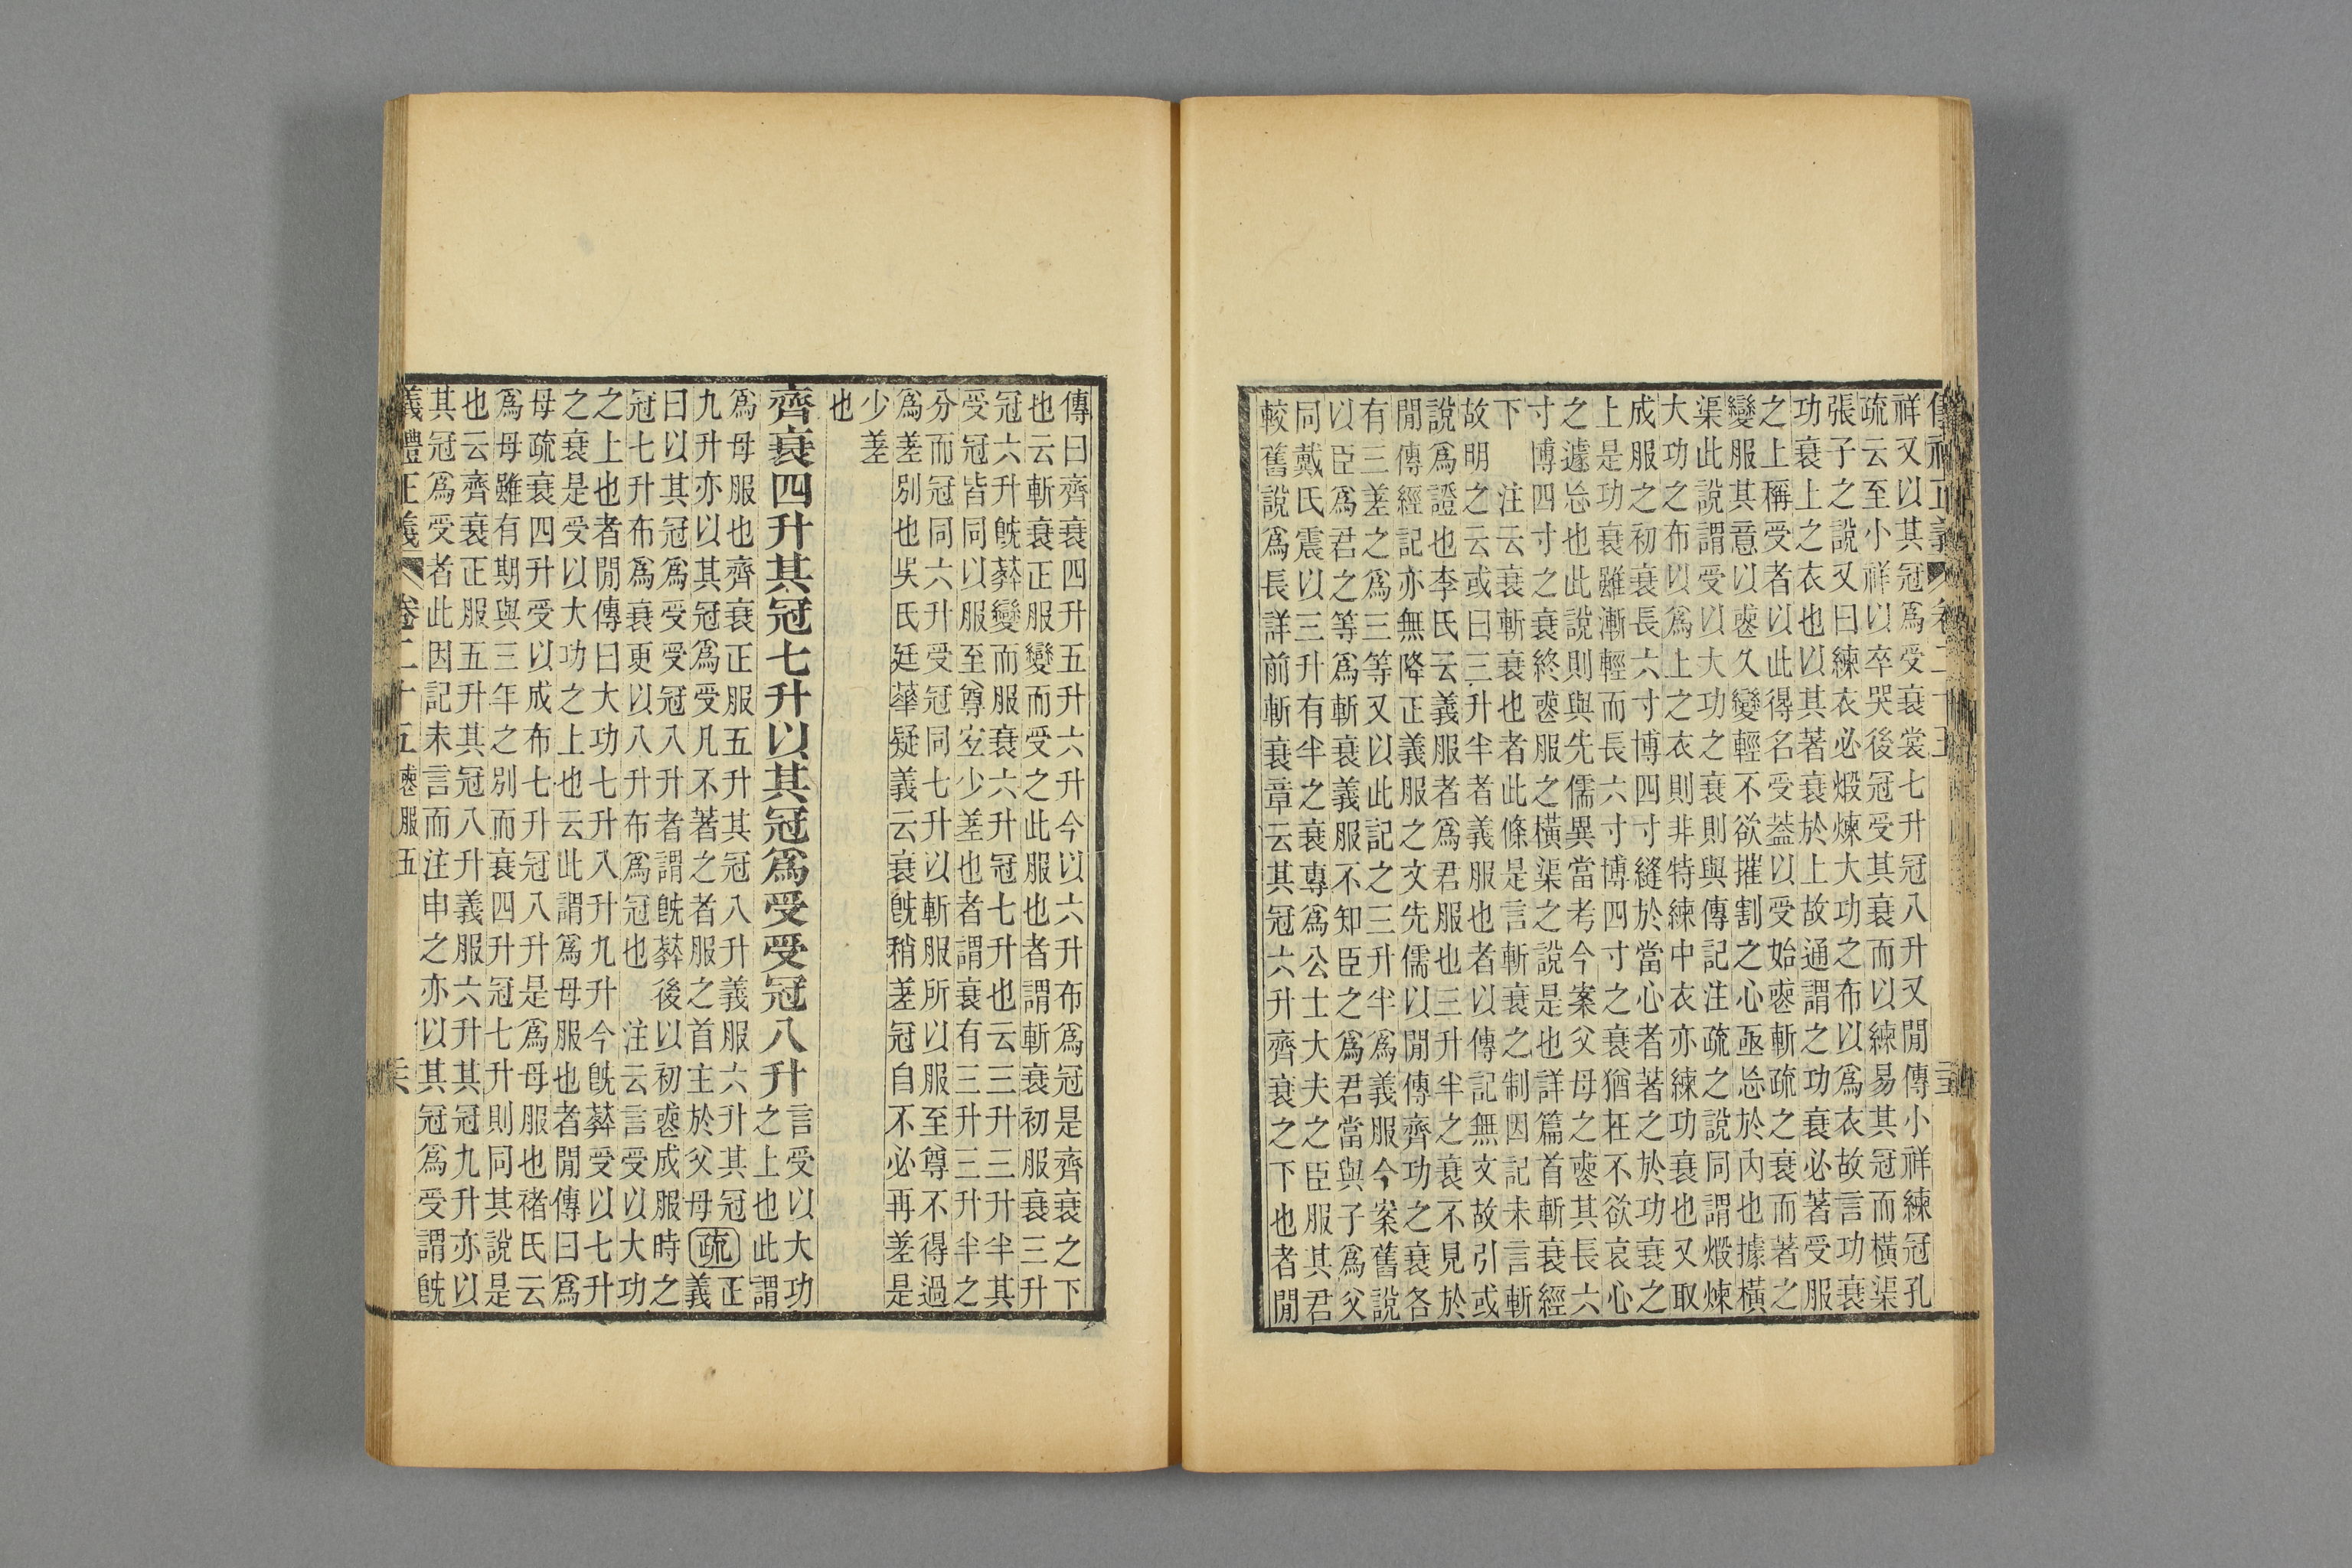 祥又以其冠爲受衰裳七升冠八升又閒傳小祥練冠孔
疏云至小祥以卒哭後冠受其衰而以練易其冠而橫渠
張子之說又曰練衣必煅煉大功之布以爲衣故言功衰
功衰上之衣也以其著衰於上故通謂之功衰必著受服
之上稱受者以此得名受葢以受始䘮斬疏之衰而著之
變服其意以䘮久變輕不欲摧割之心亟忘於內也據橫
渠此說謂受以大功之衰則與傳記注疏之說同謂煅煉
大功之布以爲上之衣則非特練中衣亦練功衰也又取
成服之初衰長六寸博四寸縫於當心者著之於功衰之
上是功衰雖漸輕而長六寸博四寸之衰猶在不欲哀心
之遽忘也此說則與先儒異當考今案父母之䘮其長六
寸博四寸之衰終䘮服之橫渠之說是也詳篇首斬衰經
下 注云衰斬衰也者此條是言斬衰之制因記未言斬
故明之云或曰三升半者義服也者以傳記無文故引或
說爲證也李氏云義服者爲君服也三升半之衰不見於
閒傳經記亦無降正義服之文先儒以閒傳齊功之衰各
有三差之爲三等又以此記之三升半爲義服今案舊說
以臣爲君之等爲斬衰義服不知臣之爲君當與子爲父
同戴氏震以三升有半之衰專爲公士大夫之臣服其君
較舊說爲長詳前斬衰章云其冠六升齊衰之下也者閒
傳曰齊衰四升五升六升今以六升布爲冠是齊衰之下
也云斬衰正服變而受之此服也者謂斬衰初服衰三升
冠六升旣葬變而服衰六升冠七升也云三升三升半其
受冠皆同以服至尊宐少差也者謂衰有三升三升半之
分而冠同六升受冠同七升以斬服所以服至尊不得過
爲差別也吳氏廷華疑義云衰旣稍差冠自不必再差是
少差
也
齊衰四升其冠七升以其冠爲受受冠八升
言受以大功
之上也此謂
爲母服也齊衰正服五升其冠八升義服六升其冠
九升亦以其冠爲受凡不著之者服之首主於父母
疏
正
義
曰以其冠爲受受冠八升者謂旣葬後以初䘮成服時之
冠七升布爲衰更以八升布爲冠也 注云言受以大功
之上也者閒傳曰大功七升八升九升今旣葬受以七升
之衰是受以大功之上也云此謂爲母服也者閒傳曰爲
母疏衰四升受以成布七升冠八升是爲母服也褚氏云
爲母雖有期與三年之別而衰四升冠七升則同其說是
也云齊衰正服五升其冠八升義服六升其冠九升亦以
其冠爲受者此因記未言而注申之亦以其冠爲受謂旣
儀禮正義 卷二十五 䘮服五